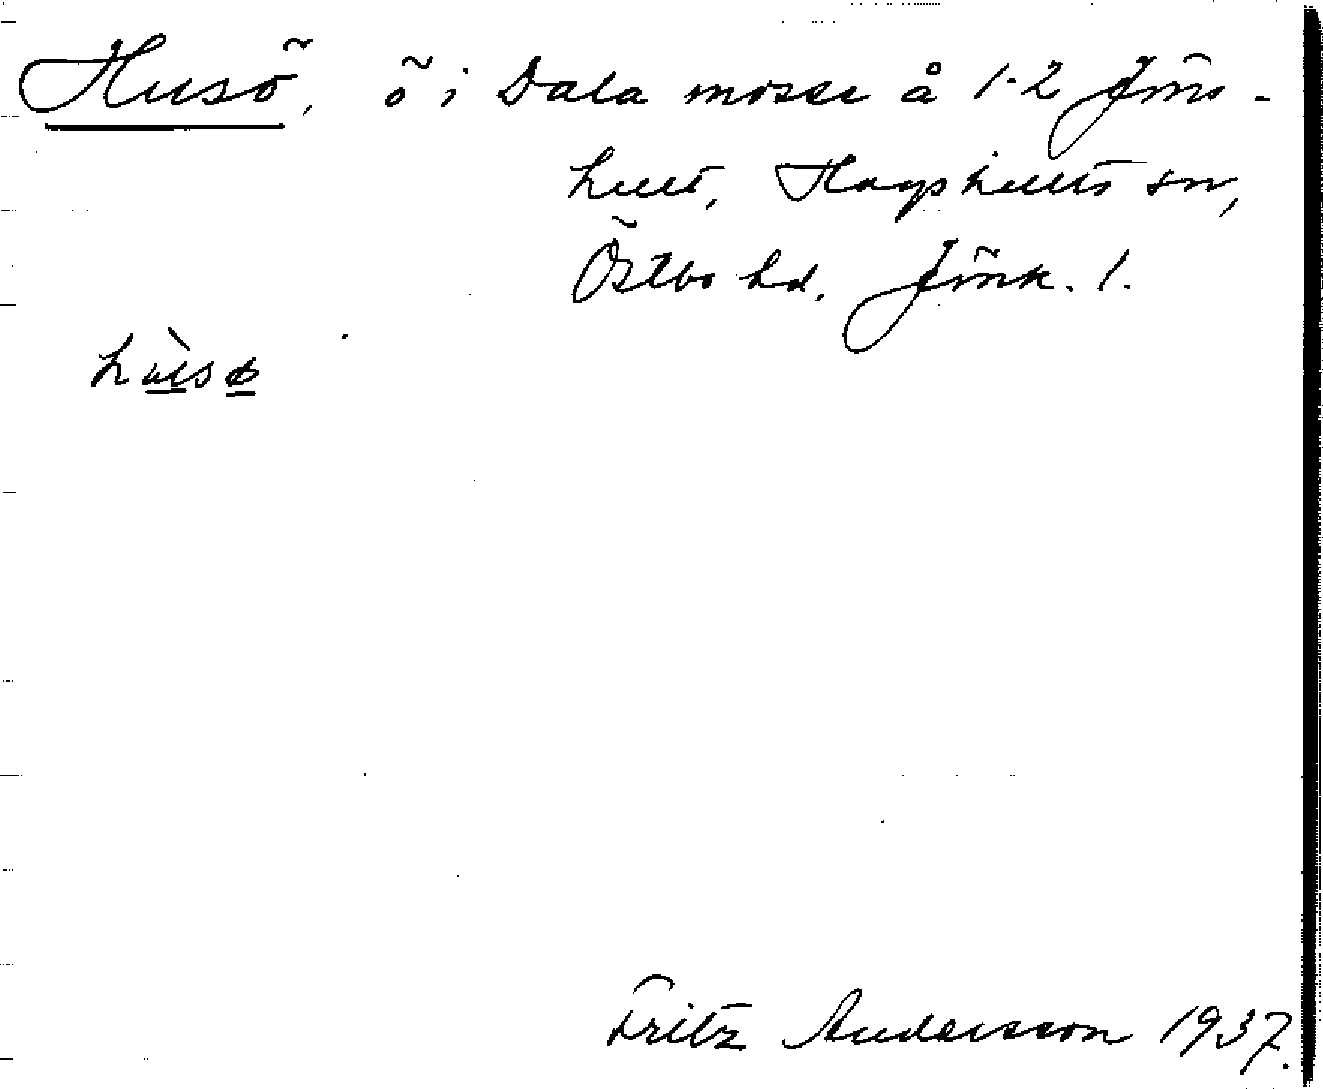 Husö, ö i Dala mosse å 1-2 Jöns-
hult, Hagshults sn,
Östbo hd. Jönk. l.
hùsø
Fritz Andersson 1937.